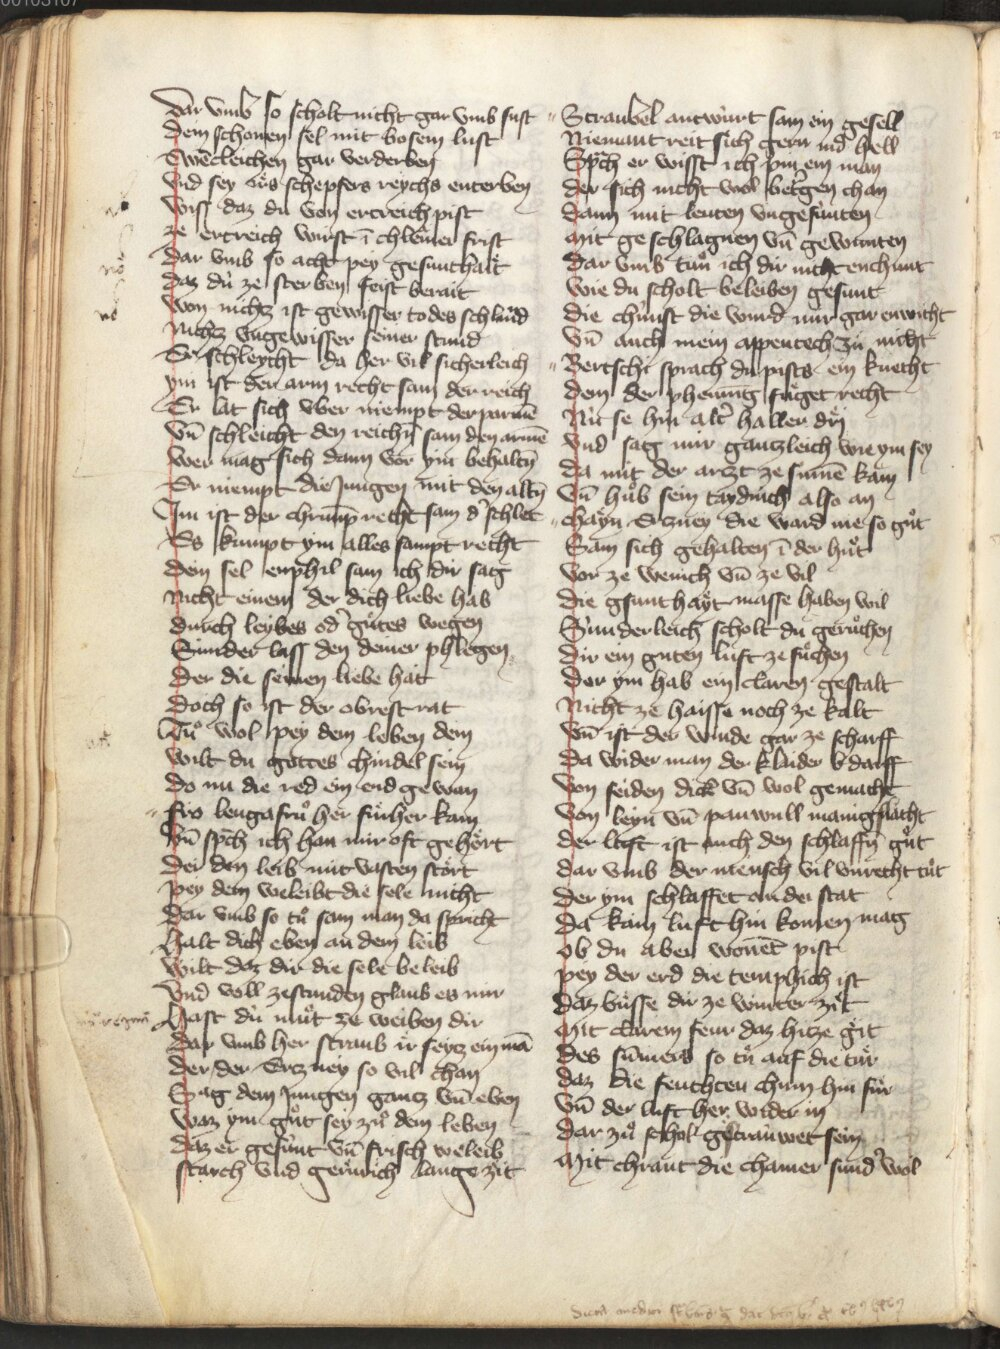 Dar vmb so scholt nicht gar vmb sust
Dein schonen sel mit bosem lust
Ewecleichen gar verderben
Vnd sey aus schepfers reychs enterben
Wiss daz du von ertreich pist
ze ertreich wirst ī chleiner frist
Dar vmb so acht pey gesunthait
daz dù ze sterben seist berait
Won nichtz ist gewisser todes schlund
Nichtz vngewisser seiner stund
Er schleycht da her vil sicherleich
ym ist der arm recht sam der reich
Er lat sich vber niempt derparmē
Vn̄ schleicht den reichn̄ sam den armē
Wer mag sich dann vor ym behaltn̄
Er niempt die Jungen mit den altn̄
Im ist der chrump recht sam d' schlet
Es kumpt ym alles sampt recht
dem sel enphil sam ich dir sag
Nicht einem der dich liebe hab
durch leybes od' gůtes wegen
Sunder lass den deiner phlegen
Der die seinen liebe hat
doch so ist der obrest rat
Tů wol pey dem leben dein
wilt du gottes chindel sein
do nu die red ein end gewan
Fro lengafrů her fur her kam
Vn̄ sp̄ch ich han mir oft gehört
Der den leib mit vasten stört
pey dem weleibt die sele nicht
Dar vmb so tů sam man da spricht
Halt dich eben an dem leib
Wilt daz dir die sele beleib
Vnd voll zestunden glaub es mir
Hast dù můt ze weiben dir
Dar vmb her Straub ir seyt ein mā
der der Ertzney so vil chan
Sag dem Jungen gantz vn̄ eben
Waz ym gůt sey zů dem leben
daz er gesunt vn̄ frisch weleib
starch vnd gerůrich lange zit
Straubel antwurt sam ein gesell
Niemant reit sich gern in d' hell
Sp̄ch er wisst ich ym ein man
der sich nicht wol betgen chan
dann mit leuten vngesunten
Mit geschlagnen vn̄ gewunten
Dar vmb tůn ich dir nicht enchunt
Wie du scholt beleiben gesunt
die chunst die wurd mir gar enwicht
Vn̄ auch mein appentech zu nicht
Bertschi sprach du pists ein knecht
dem der phening fůget recht
Nů se hin alt' haller drÿ
Vnd sag mir gantzleich wie ym sey
da mit der artzt ze sinnē kam
Vn̄ hůb sein taydinch also an
chayn Ertzney die ward nie so gůt
Sam sich gehalten ī der hůt
Vor ze wenich vn̄ ze vil
die gsunthayt masse haben wil
Sunderleich scholt du gerůchen
dir ein guten luft ze sůchen
Der ym hab ein claren gestalt
Nicht ze haisse noch ze kalt
Vn̄ ist der winde gar ze scharff
Da wider man der klaider bdarff
Von seiden dick vn̄ wol gemacht
Von leyn vn̄ pauwull manigslacht
der luft ist auch den schlaffn̄ gůt
dar vmb der mensch vil vnrecht tůt
der ym schlaffet an der stat
Da kain luft hin komen mag
ob du aber wonēt pist
pey der erd die temphich ist
daz busse dir ze winter zit
Mit clarem feur daz hitze git
des sumers so tů auf die tůr
daz die feuchten chum hin fůr
Vn̄ der luft her wider in
dar zů schol getrauwet sein
Mit chraut die chamer sund' wol